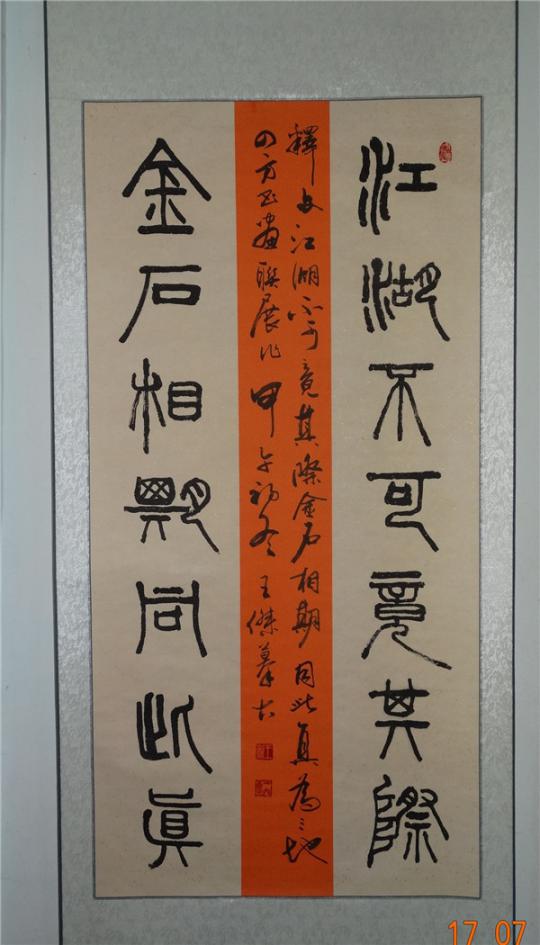 江湖不可竟其際
釋文江湖不可竟其際金石相期同此真為三地
四方書畫聯展作甲午初冬王傑摹古
金石相期同此真
17 07